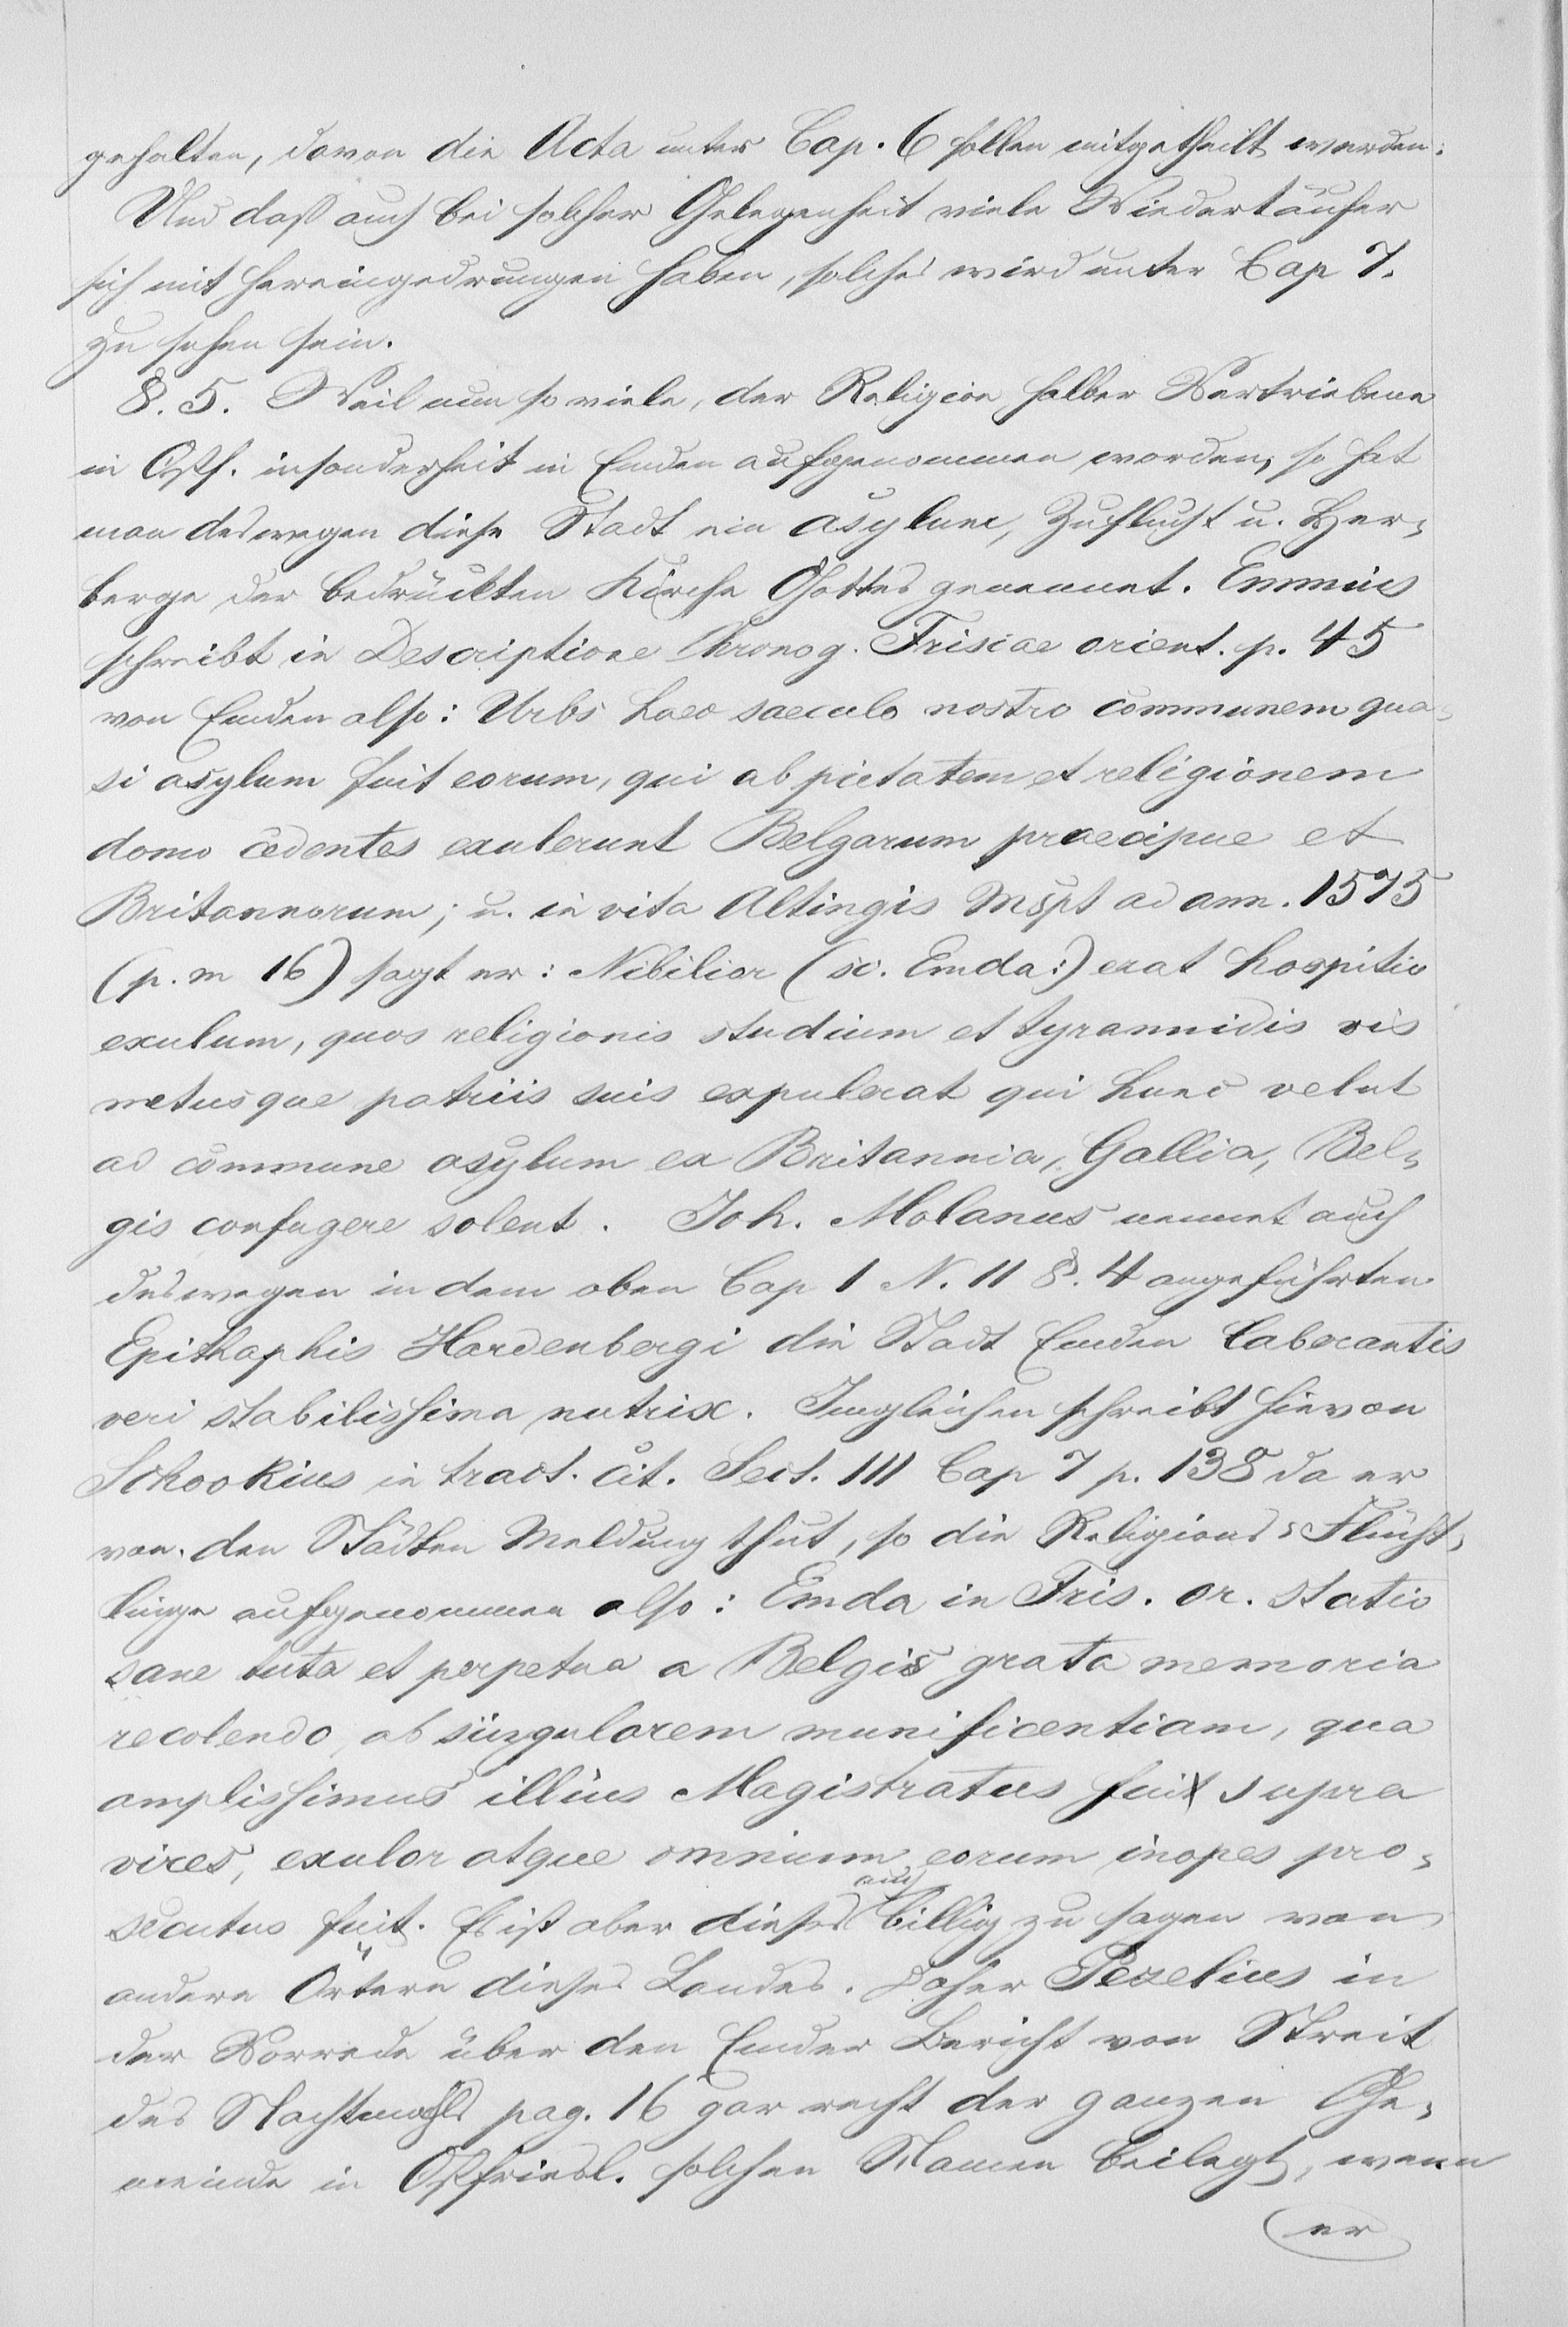 gehalten, davon die Acta unter Cap. 6 sollen mitgetheilt werden.
Und daß auch bei solcher Gelegenheit viele Wiedertäufer
sich mit hereingedrungen haben, solches wird unter Cap 7.
zu sehen sein.
§. 5. Weil nun so viele, der Religion halber Vertriebene
in Ostf. insonderheit in Emden aufgenommen worden, so hat
man deswegen diese Stadt ein asylum, Zuflucht u. Her-
berge der bedrückten Kirche Gottes genennet. Emmius
schreibt in Descriptione Chronog. Frisiae orient. p. 45
von Emden also: Urbs haec saeculo nostro communem qua-
si asylum fuit eorum, qui ab pietatem et religionem
domo cedentes exulerunt Belgarum praecipue et
Britannorum; u. in vita Altingis Mspt ad ann. 1575
(p. m 16) sagt er: Nibilior (sc. Emda:) erat hospitio
exulum, quos religionis studium et tyrannidis vis
metusque patriis suis expulerat qui hunc velut
ad commune asylum ex Britannia, Gallia, Bel-
gis confugere solent. Joh. Molanus nennet auch
deswegen in dem oben Cap 1 N. 11 §. 4 angeführten
Epithaphis Hardenbergi die Stadt Emden laborantis
veri stabilissima nutrix. Imgleichen schreibt hievon
Schookius in tract. cit. Sect. III Cap 7 p. 138 da er
von den Städten Meldung thut, so die Religions-Flücht-
linge aufgenommen also: Emda in Fris. or. statio
sane tuta et perpetua a Belgis grata memoria
recolendo, ob singularem munificentiam, qua
amplissimus illius Magistratus fuit supra
vires, exulor atque omnium eorum inopes pro-
secutus fuit. Es ist aber dieses auch billig zu sagen von
andern Örtern dieses Landes. Daher Pezelius in
der Vorrede über den Emder Bericht von Streit
des Nachtmahls pag. 16 gar recht der ganzen Ge-
meinde in Ostfriesl. solchen Namen beilegt, wenn
er